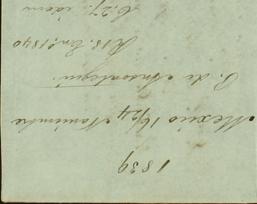 1839
Mexico 16/24 Noviembre
P. de Ansoategui
R 18. En.º 1840
C. 27. idem